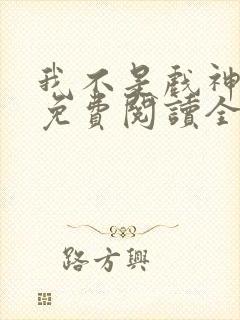 我不是戲神
免費閱讀全
路方興